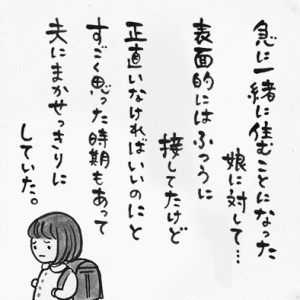 急に一緒に住むことになった
娘に対して…
表面的にはふつうに
接してたけど
正直いなければいいのにと
すごく思った時期もあって
夫にまかせっきりに
していた。